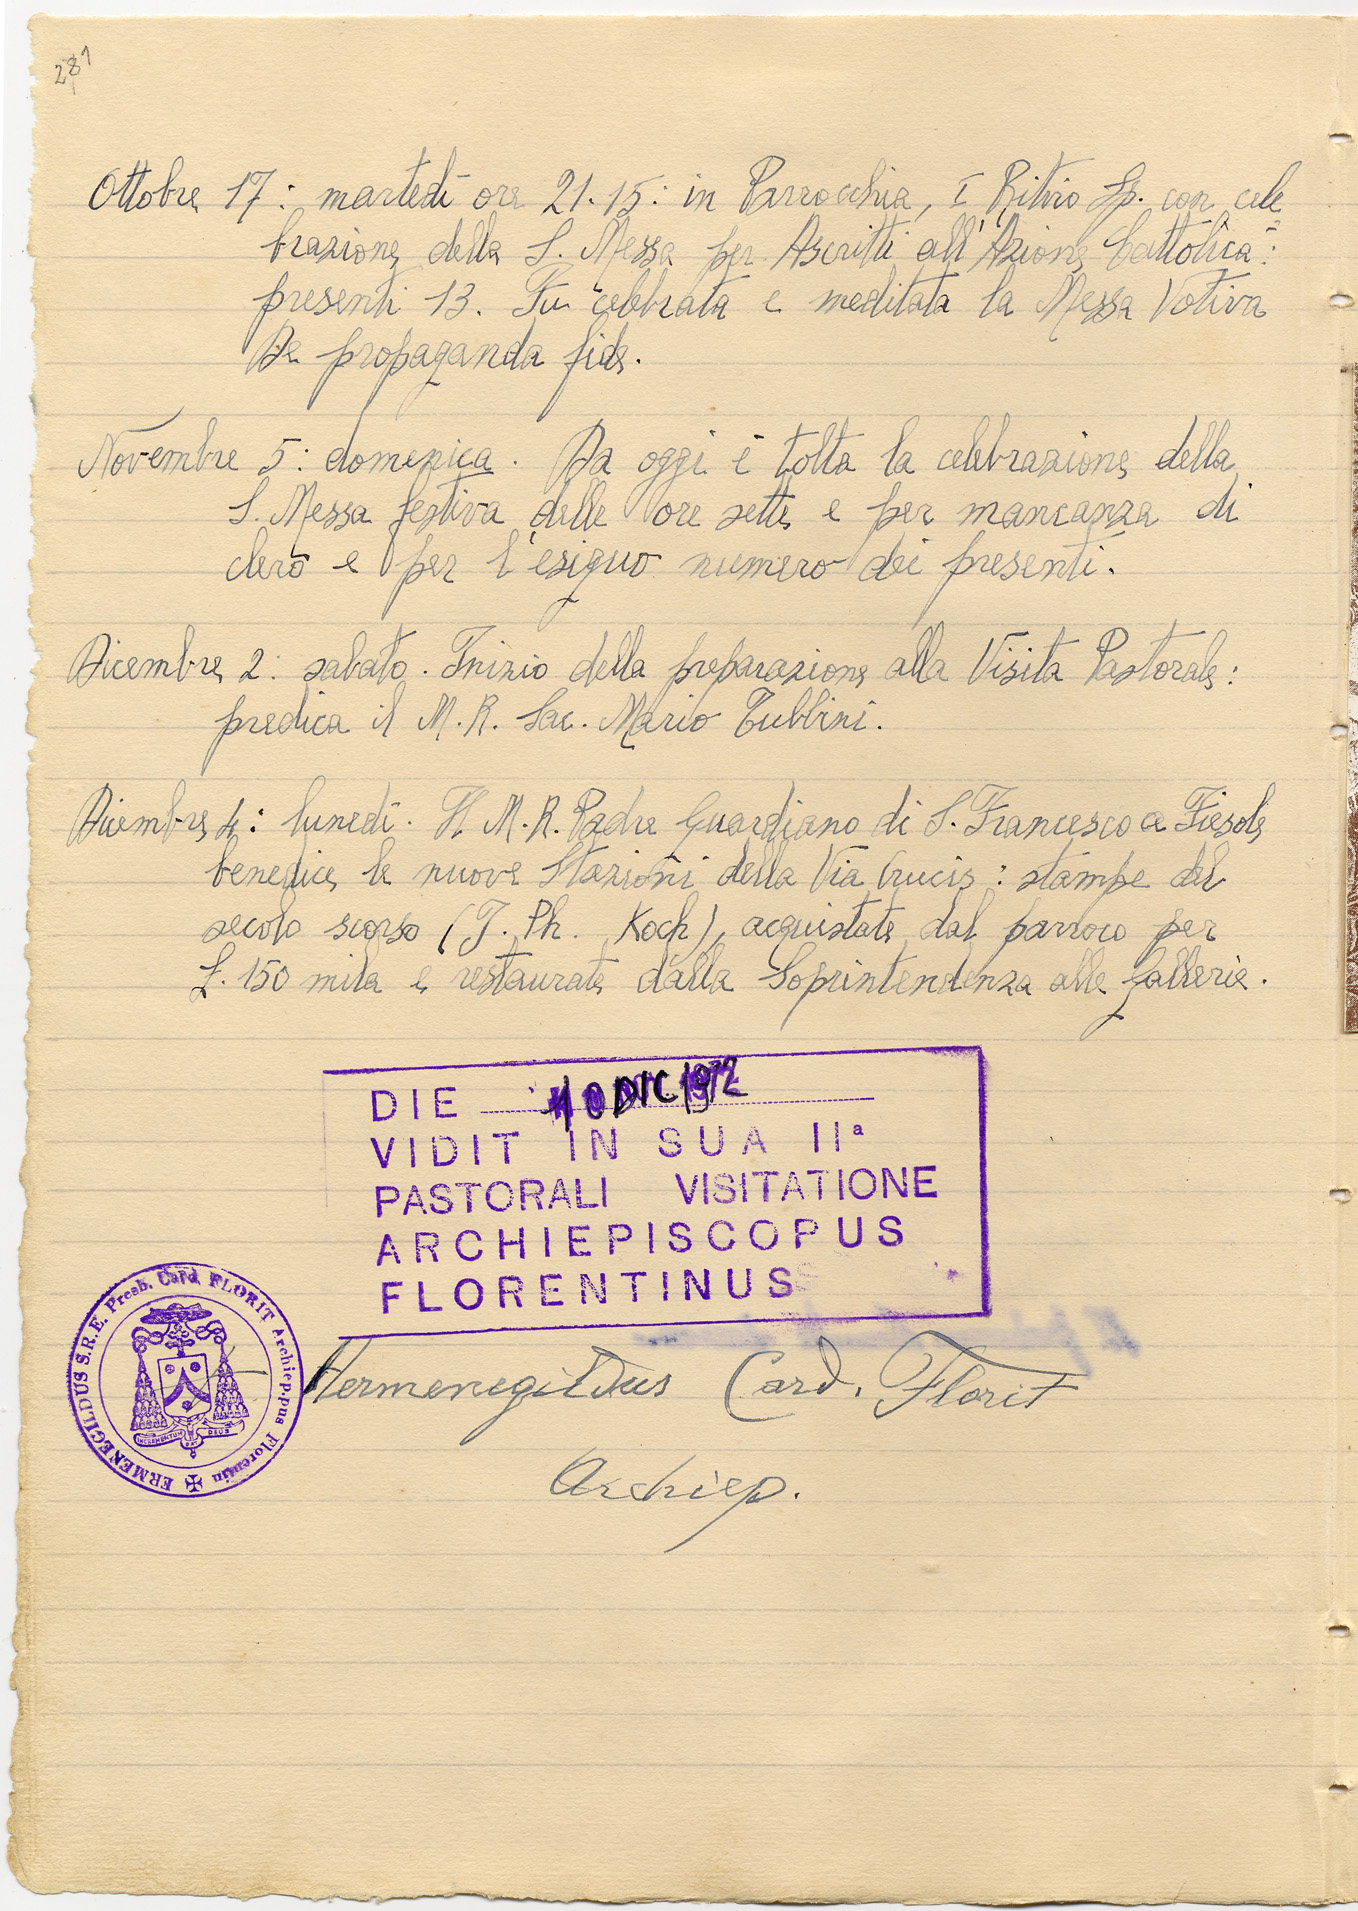 281
Ottobre 17: martedì ore 21.15: in Parrocchia, I Ritiro Sp. con cele
brazione della S. Messa per Ascritti all'Azione Cattolica:
presenti 13. Fu celebrata e meditata la Messa Votiva
De propaganda fide.
Novembre 5: domenica. Da oggi è tolta la celebrazione della
S. Messa festiva delle ore sette e per mancanza di
clero e per l'esiguo numero dei presenti.
Dicembre 2: sabato. Inizio della preparazione alla Visita Pastorale:
predica il M. R. Sac. Mario Tubbini.
Dicembre 4: lunedì. Il M. R. Padre Guardiano di S. Francesco a Fiesole
benedice le nuove Stazioni della Via Crucis: stampe del
secolo scorso (J. Ph. Koch), acquistate dal parroco per
£. 150 mila e restaurate dalla Soprintendenza alle Gallerie.
DIE 10 DIC 1972
VIDIT IN SUA IIª
PASTORALI VISITATIONE
ARCHIEPISCOPUS
FLORENTINUS
ERMENEGILDUS S.R.E. Presb. Card. FLORIT Archiep.pus Florentin
INCREMENTUM DAT DEUS
Hermenegildus Card. Florit
Archiep.